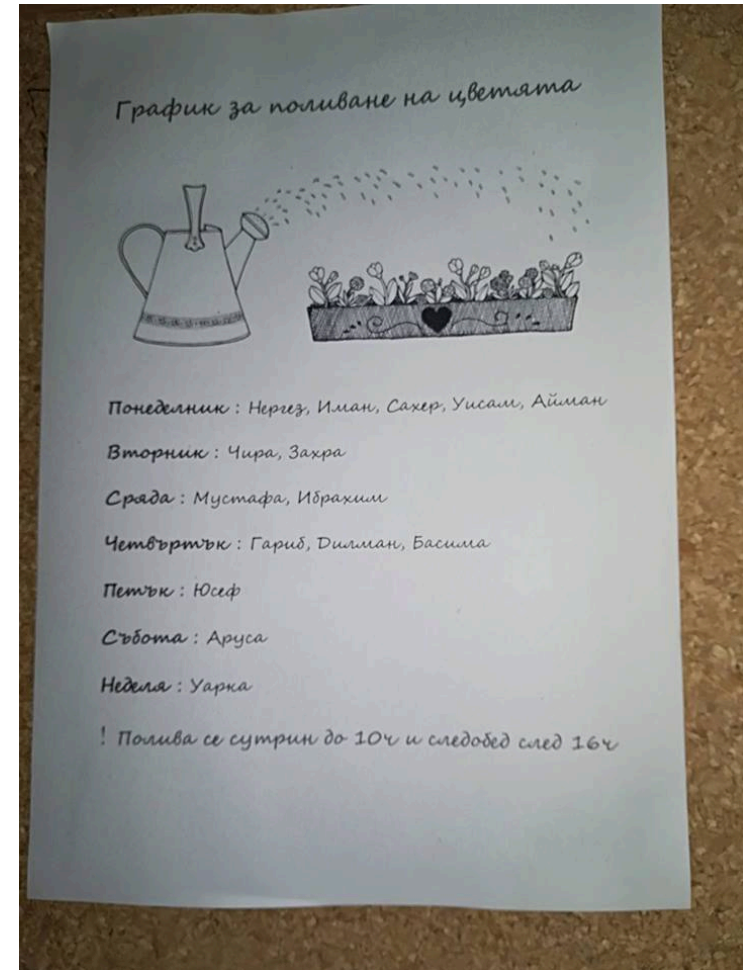 График за поливане на цветята
Понеделник : Нергез, Иман, Сахер, Уисам, Айман
Вторник : Чира, Захра
Сряда : Мустафа, Ибрахим
Четвъртък : Гариб, Дилман, Басима
Петък : Юсеф
Събота : Аруса
Неделя : Уарка
! Полива се сутрин до 10ч и следобед след 16ч